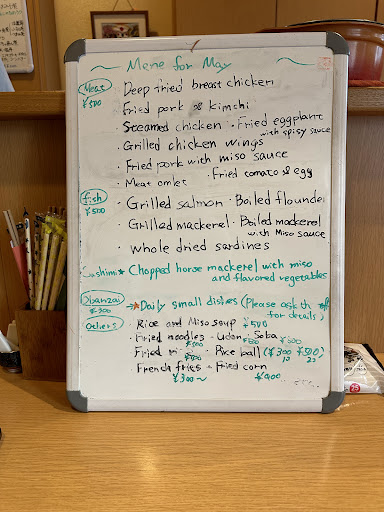 Mene for May
Meat
¥500
Deep fried breast chicken
Fried pork & kimchi
Steamed chicken · Fried eggplant
with spisy sauce
· Grilled chicken wings
· Fried pork with miso sauce
· Meat omlet · Fried tomato & egg
fish
¥500
· Grilled salmon · Boiled flounder
· Grilled mackerel · Boiled mackerel
with Miso sauce
· whole dried sardines
Sashimi ★ Chopped horse mackerel with miso
and flavored vegetables
Obanzai
¥300
→★Daily small dishes (Please ask
for details)
Others
· Rice and Miso soup ¥500
· Fried noodles · Udon · Soba
· Fried · Rice ball (¥300 ¥500)
· French fries · Fried corn
¥300~
25